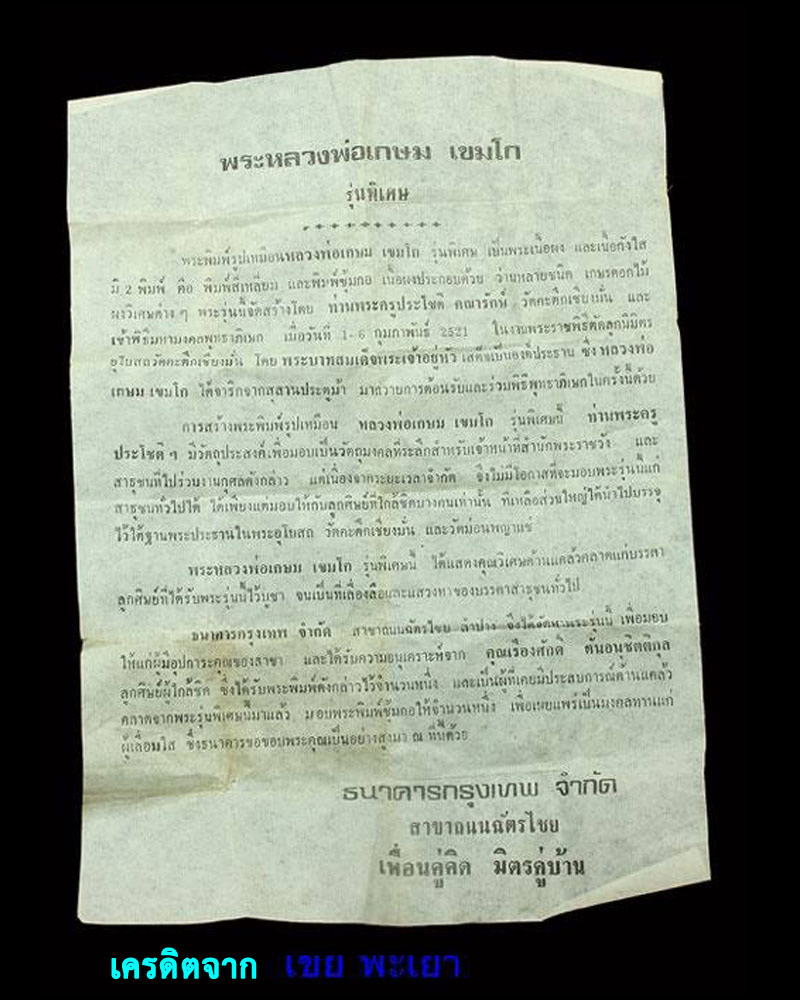 พระหลวงพ่อเกษม เขมโก
รุ่นพิเศษ
พระพิมพ์รูปเหมือนหลวงพ่อเกษม เขมโก รุ่นพิเศษ เป็นพระเนื้อผง และเนื้อกังใส
มี 2 พิมพ์ คือ พิมพ์สี่เหลี่ยม และพิมพ์ซุ้มกอ เนื้อผงประกอบด้วย ว่านหลายชนิด เกษรดอกไม้
ผงวิเศษต่างๆ พระรุ่นนี้จัดสร้างโดย ท่านพระครูประโชติ คณารักษ์ วัดคะตึกเชียงมั่น และ
เข้าพิธีมหามงคลพุทธาภิเษก เมื่อวันที่ 1-6 กุมภาพันธ์ 2521 ในงานพระราชพิธีตัดลูกนิมิตร
อุโบสถวัดคะตึกเชียงมั่น โดย พระบาทสมเด็จพระเจ้าอยู่หัว เสด็จเป็นองค์ประธาน ซึ่ง หลวงพ่อ
เกษม เขมโก ได้จาริกจากสุสานประตูม้า มาถวายการต้อนรับและร่วมพิธีพุทธาภิเษกในครั้งนี้ด้วย
การสร้างพระพิมพ์รูปเหมือน หลวงพ่อเกษม เขมโก รุ่นพิเศษนี้ ท่านพระครู
ประโชติฯ มีวัตถุประสงค์เพื่อมอบเป็นวัตถุมงคลที่ระลึกสำหรับเจ้าหน้าที่สำนักพระราชวัง และ
สาธุชนที่ไปร่วมงานกุศลดังกล่าว แต่เนื่องจากระยะเวลาจำกัด จึงไม่มีโอกาสที่จะมอบพระรุ่นนี้แก่
สาธุชนทั่วไปได้ ได้เพียงแต่มอบให้กับลูกศิษย์ที่ใกล้ชิดบางคนเท่านั้น ที่เหลือส่วนใหญ่ได้นำไปบรรจุ
ไว้ใต้ฐานพระประธานในพระอุโบสถ วัดคะตึกเชียงมั่น และวัดม่อนพญาแช่
พระหลวงพ่อเกษม เขมโก รุ่นพิเศษนี้ ได้แสดงคุณวิเศษด้านแคล้วคลาดแก่บรรดา
ลูกศิษย์ที่ได้รับพระรุ่นนี้ไว้บูชา จนเป็นที่เลื่องลือและแสวงหาของบรรดาสาธุชนทั่วไป
ธนาคารกรุงเทพ จำกัด สาขาถนนฉัตรไชย ลำปาง จึงได้จัดหาพระรุ่นนี้ เพื่อมอบ
ให้แก่ผู้มีอุปการะคุณของสาขา และได้รับความอนุเคราะห์จาก คุณเรืองศักดิ์ ตั้นอนุชิตติกุล
ลูกศิษย์ผู้ใกล้ชิด ซึ่งได้รับพระพิมพ์ดังกล่าวไว้จำนวนหนึ่ง และเป็นผู้ที่เคยมีประสบการณ์ด้านแคล้ว
คลาดจากพระรุ่นพิเศษนี้มาแล้ว มอบพระพิมพ์ซุ้มกอให้จำนวนหนึ่ง เพื่อเผยแพร่เป็นมงคลทานแก่
ผู้เลื่อมใส ซึ่งธนาคารขอขอบพระคุณเป็นอย่างสูงมา ณ ที่นี้ด้วย
ธนาคารกรุงเทพ จำกัด
สาขาถนนฉัตรไชย
เพื่อนคู่คิด มิตรคู่บ้าน
เครดิตจาก เขย พะเยา